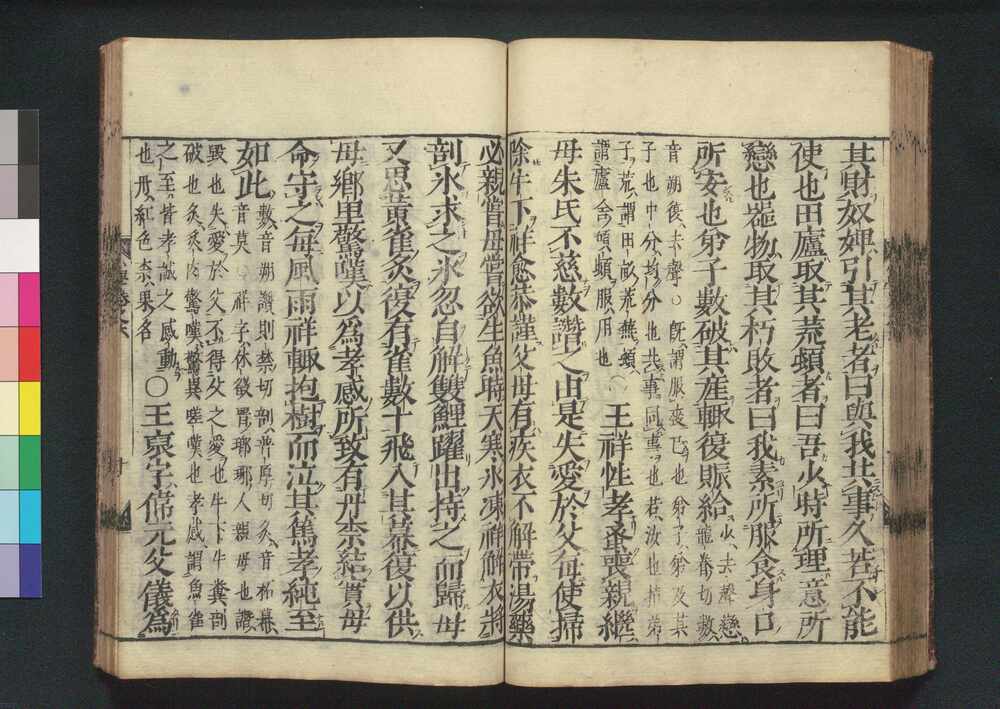 其財奴婢引其老者曰與我共事久若不能
使也田廬取其荒頓者曰吾少時所理意所
戀也器物取其朽敗者曰我素所服食身口
所安也弟子數破其產輒復賑給
少去聲戀
龍眷切數
音朔復去聲○旣謂服喪已也弟子弟及其
子也中分均分也共事同事也若汝也指弟
子荒謂田畝荒蕪頓
謂廬舍傾頓服用也
○王祥性孝蚤喪親繼
母朱氏不慈數譖之由是失愛於父每使掃
除牛下祥愈恭謹父母有疾衣不解帶湯藥
必親嘗母嘗欲生魚時天寒冰凍祥解衣將
剖冰求之冰忽自解雙鯉躍出持之而歸母
又思黃雀炙復有雀數十飛入其幕復以供
母鄉里驚嘆以為孝感所致有丹柰結實母
命守之每風雨祥輒抱樹而泣其篤孝純至
如此
數音朔譖則禁切剖普厚切炙音柘幕
音莫○祥字休徵晉瑯琊人親母也譖
毀也失愛於父不得父之愛也牛下牛糞剖
破也炙炙肉驚嘆驚異嗟嘆也孝感謂魚雀
之至皆孝誠之感動
也丹紅色柰果名
○王裒字偉元父儀為